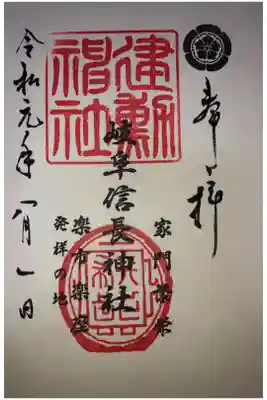 奉拝
建勲
神社
岐阜信長神社
家門繁栄
楽市楽座
発祥の地
令和元年八月一日